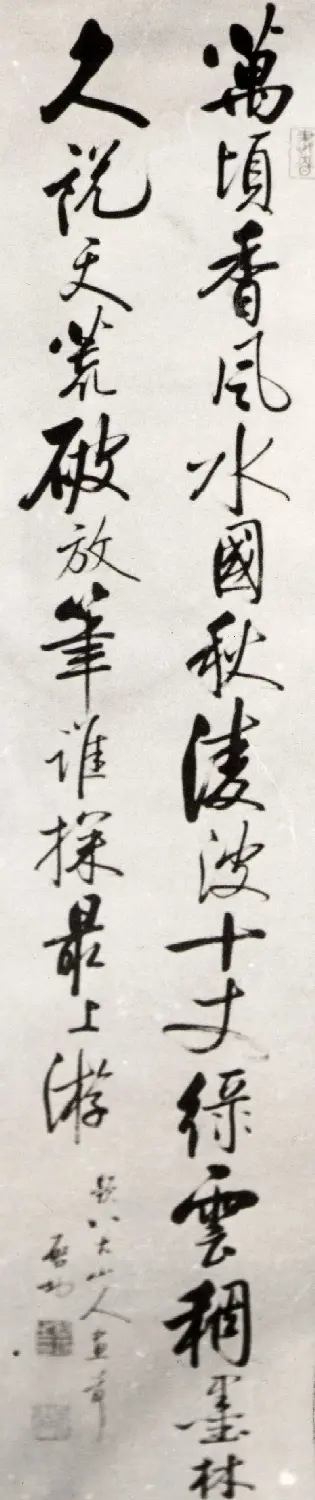 萬頃香風水國秋淩波十丈綠雲稠墨林
久說天荒破放筆誰探最上游
題八大山人畫
啓功